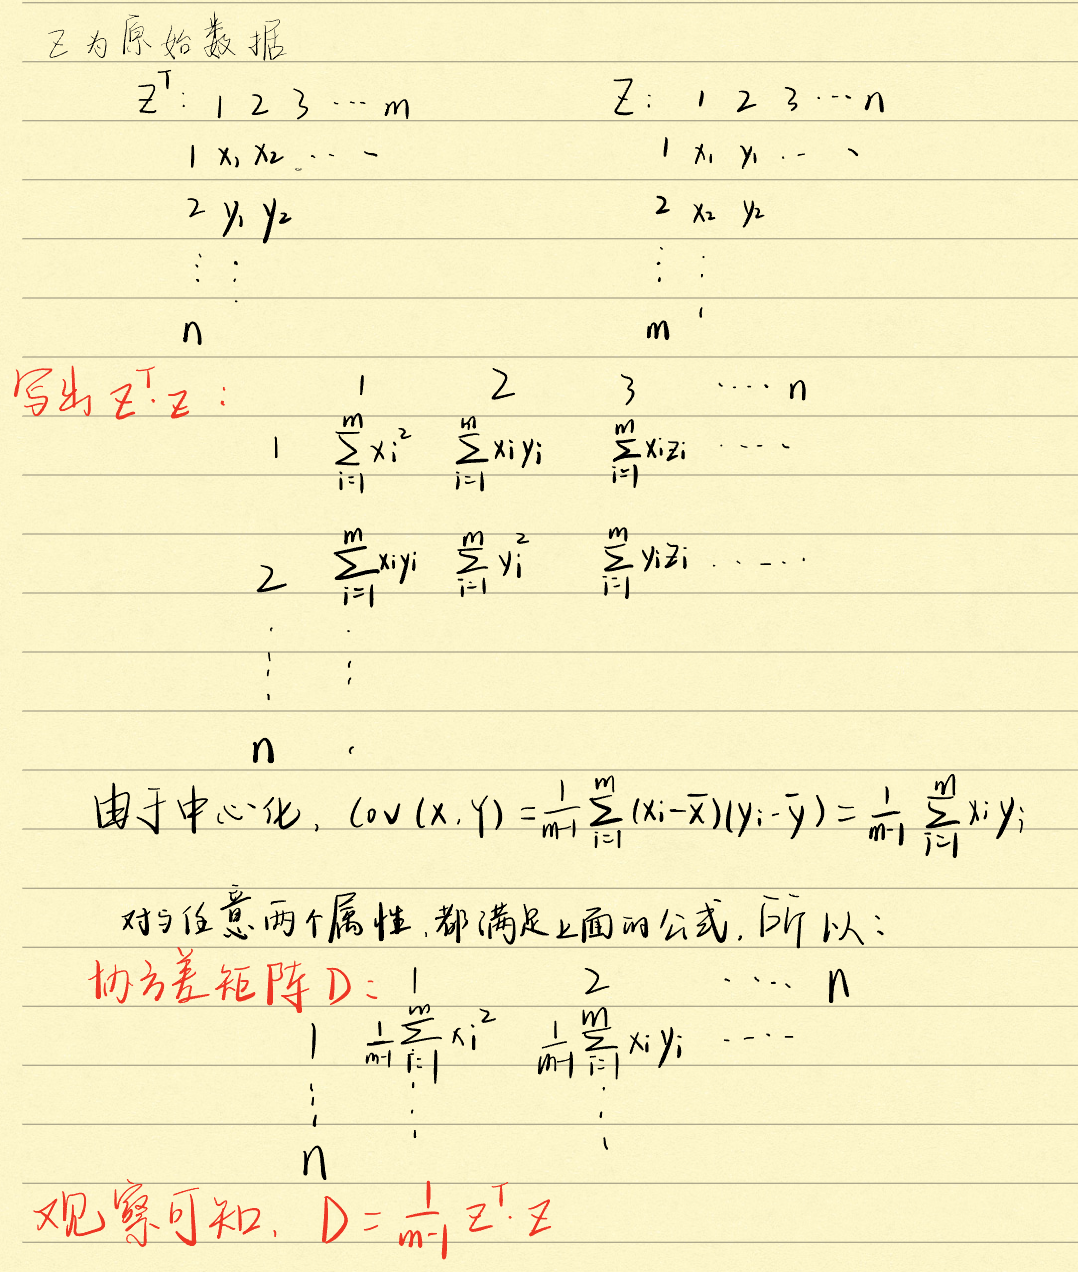 Z为原始数据
Zᵀ: 1 2 3 ⋯ m Z: 1 2 3 ⋯ n
1 x₁ x₂ ⋯ 1 x₁ y₁ ⋯
2 y₁ y₂ 2 x₂ y₂
⋮ ⋮ ⋮ ⋮
n m
写出 Zᵀ·Z : 1 2 3 ⋯ n
1 ∑_{i=1}^{m} xᵢ² ∑_{i=1}^{m} xᵢyᵢ ∑_{i=1}^{m} xᵢzᵢ ⋯
2 ∑_{i=1}^{m} xᵢyᵢ ∑_{i=1}^{m} yᵢ² ∑_{i=1}^{m} yᵢzᵢ ⋯
⋮ ⋮
n
由于中心化, Cov(X,Y) = \frac{1}{m-1} ∑_{i=1}^{m} (xᵢ-x̄)(yᵢ-ȳ) = \frac{1}{m-1} ∑_{i=1}^{m} xᵢyᵢ
对与任意两个属性,都满足上面的公式,所以:
协方差矩阵D: 1 2 ⋯ n
1 \frac{1}{m-1} ∑_{i=1}^{m} xᵢ² \frac{1}{m-1} ∑_{i=1}^{m} xᵢyᵢ ⋯
⋮ ⋮ ⋮
n
观察可知, D = \frac{1}{m-1} Zᵀ·Z